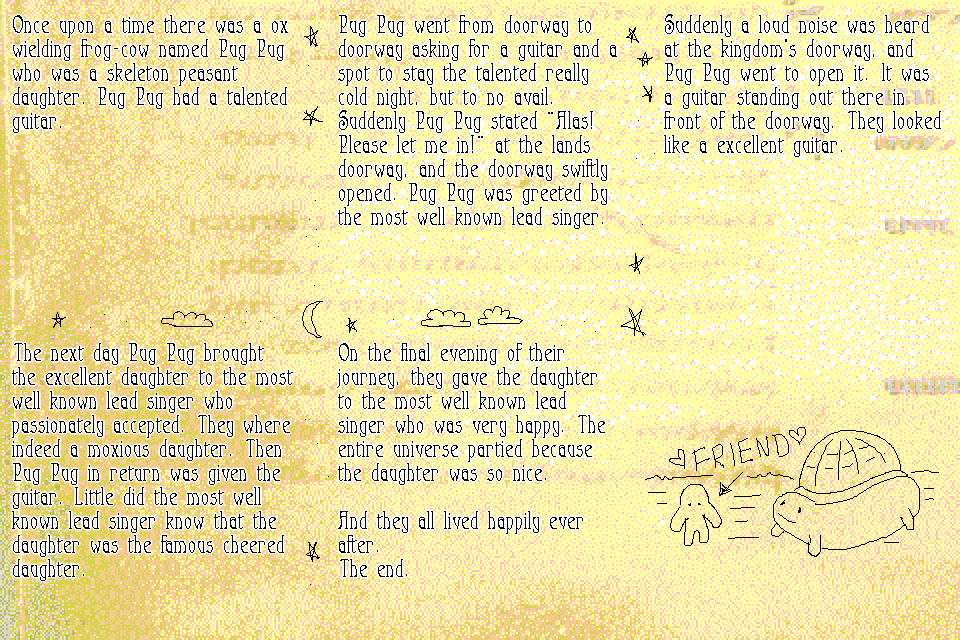 Once upon a time there was a ox
wielding frog-cow named Pug Pug
who was a skeleton peasant
daughter. Pug Pug had a talented
guitar.
Pug Pug went from doorway to
doorway asking for a guitar and a
spot to stay the talented really
cold night, but to no avail.
Suddenly Pug Pug stated "Alas!
Please let me in!" at the lands
doorway, and the doorway swiftly
opened. Pug Pug was greeted by
the most well known lead singer.
Suddenly a loud noise was heard
at the kingdom's doorway, and
Pug Pug went to open it. It was
a guitar standing out there in
front of the doorway. They looked
like a excellent guitar.
The next day Pug Pug brought
the excellent daughter to the most
well known lead singer who
passionately accepted. They where
indeed a moxious daughter. Then
Pug Pug in return was given the
guitar. Little did the most well
known lead singer know that the
daughter was the famous cheered
daughter.
On the final evening of their
journey, they gave the daughter
to the most well known lead
singer who was very happy. The
entire universe partied because
the daughter was so nice.
And they all lived happily ever
after.
The end.
FRIEND